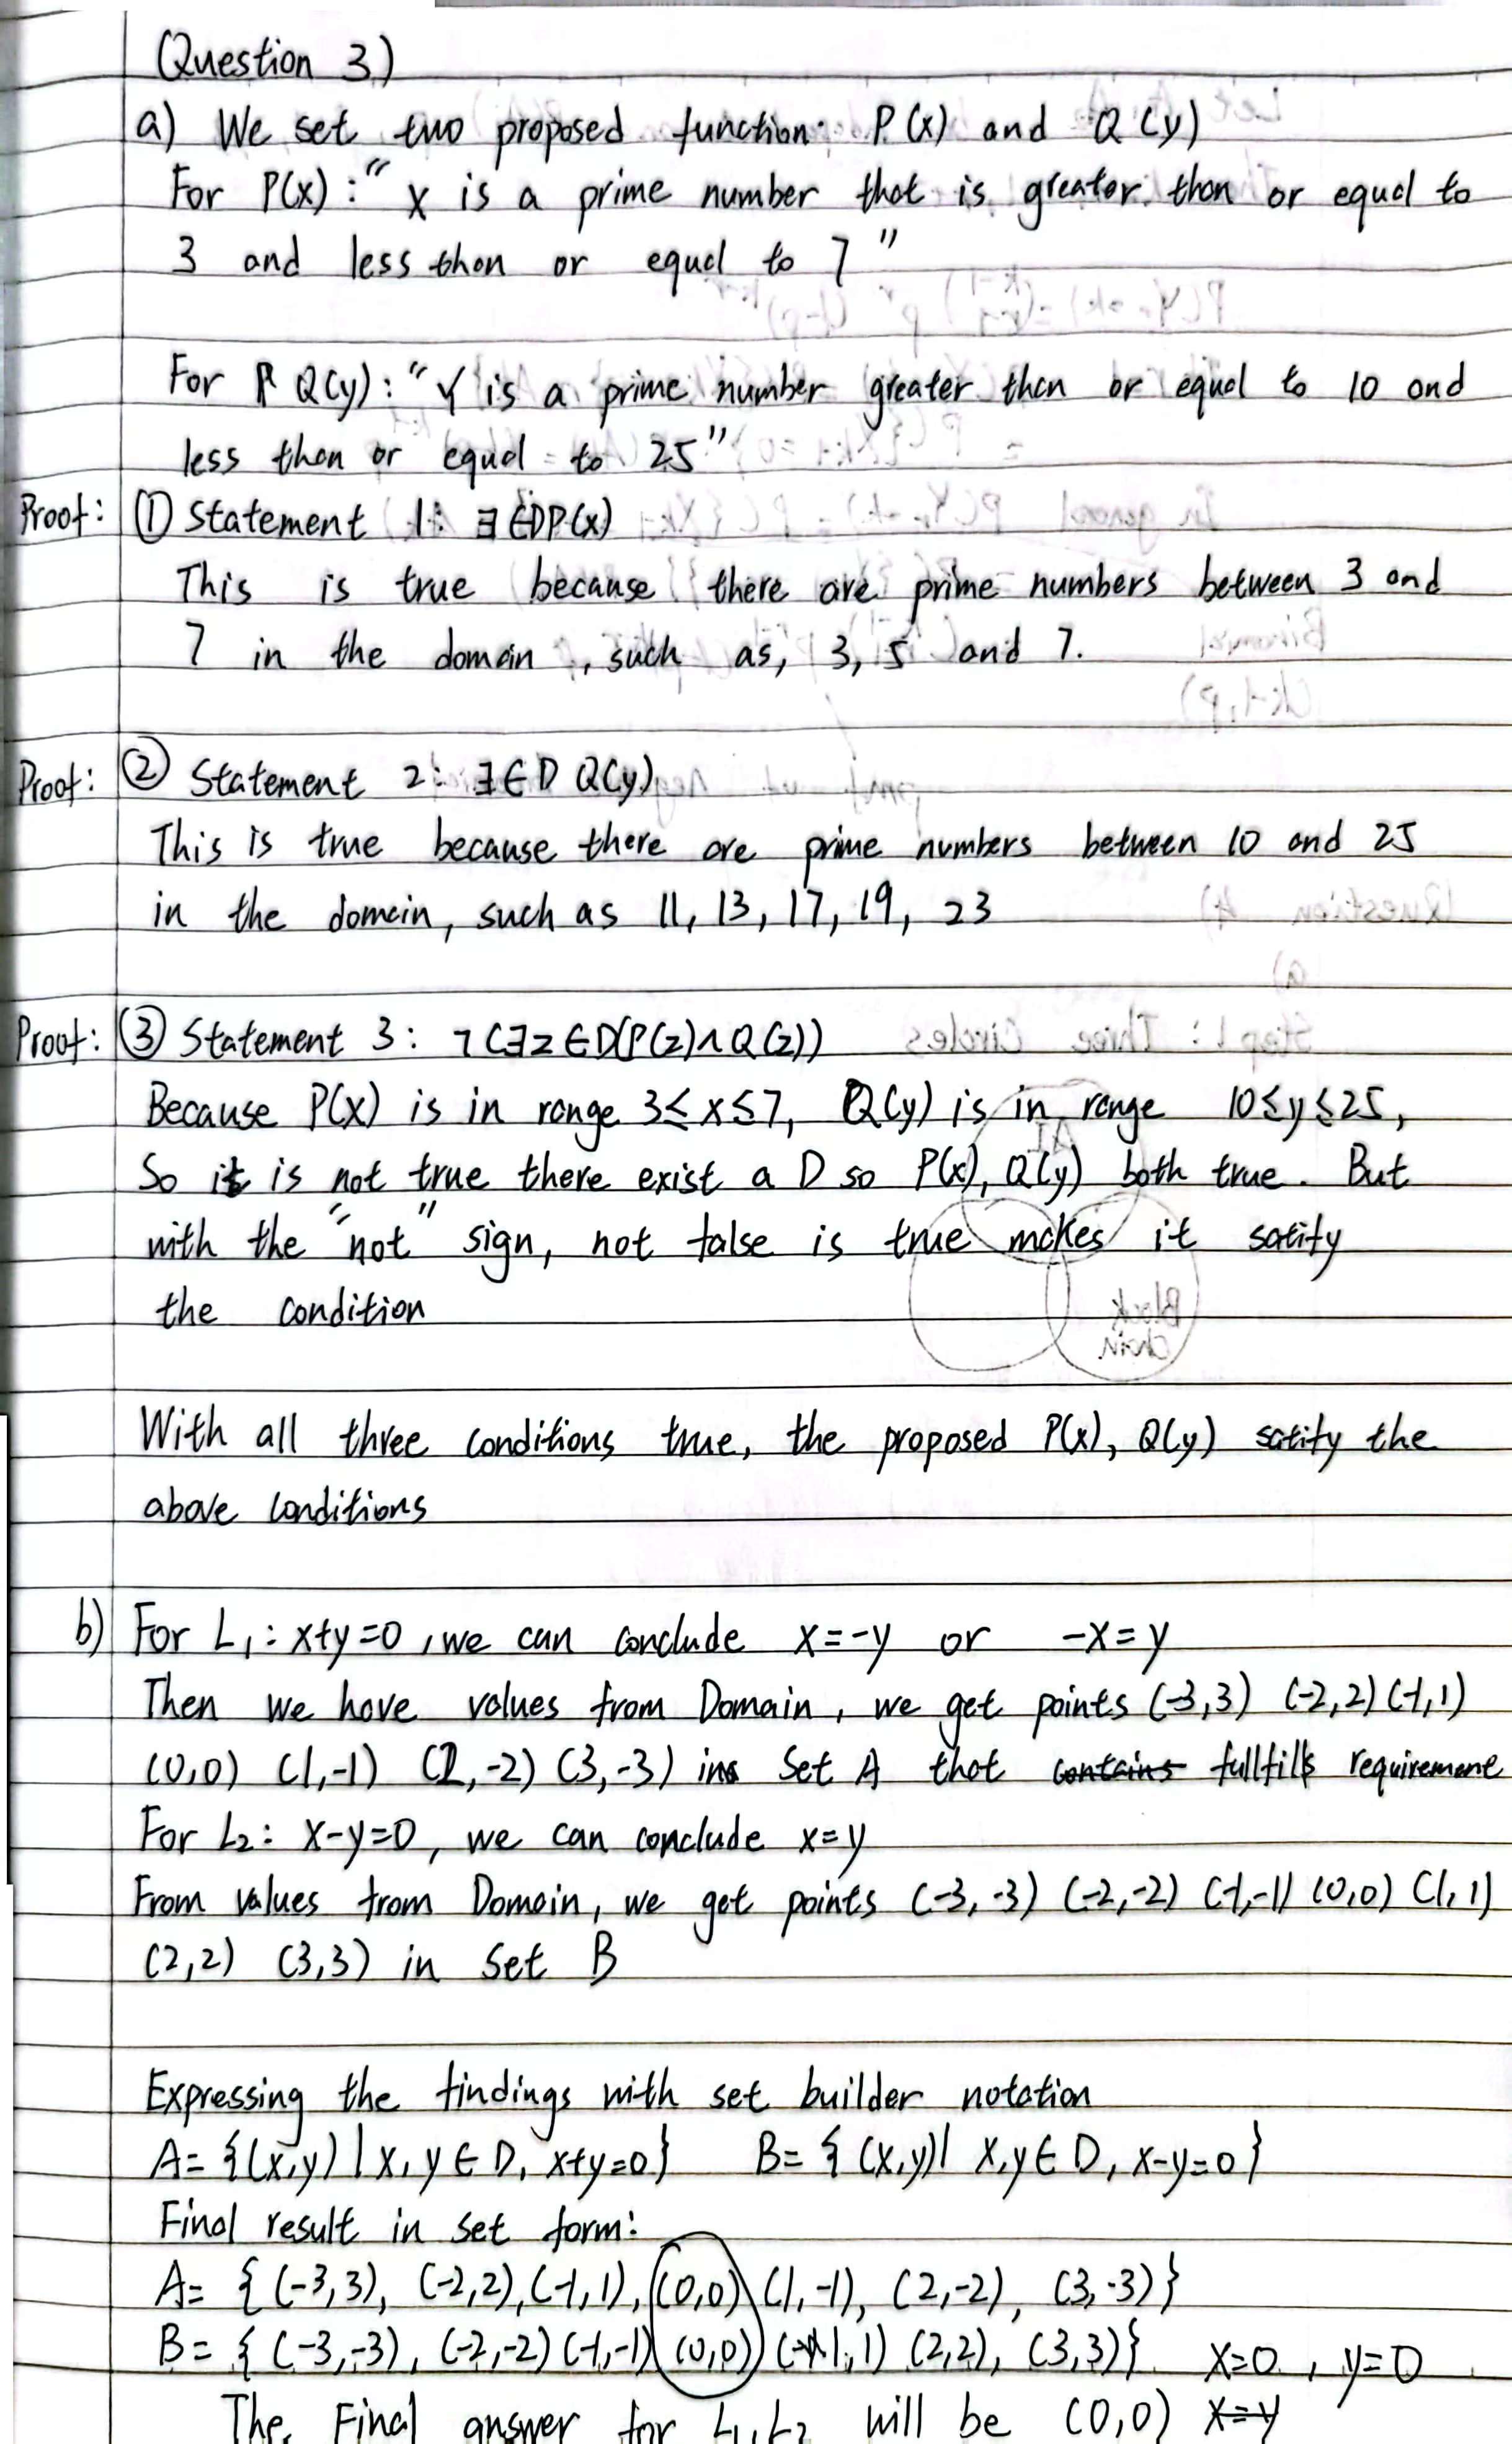 (Question 3)
a) We set two proposed function: P(x) and Q(y)
For P(x): "x is a prime number that is greater than or equal to
3 and less than or equal to 7"
For Q(y): "Y is a prime number greater than or equal to 10 and
less than or equal to 25"
Proof: ① Statement 1: ∃∈DP(x)
This is true because there are prime numbers between 3 and
7 in the domain, such as, 3, 5 and 7.
Proof: ② Statement 2: ∃∈D Q(y)
This is true because there are prime numbers between 10 and 25
in the domain, such as 11, 13, 17, 19, 23
Proof: ③ Statement 3: ¬(∃z∈D(P(z)∧Q(z))
Because P(x) is in range 3≤x≤7, Q(y) is in range 10≤y≤25,
So it is not true there exist a D so P(x), Q(y) both true. But
with the "not" sign, not false is true makes it satify
the condition
With all three conditions true, the proposed P(x), Q(y) satify the
above conditions
b) For L₁: x+y=0, we can conclude x=-y or -x=y
Then we have values from Domain, we get points (-3,3) (-2,2) (-1,1)
(0,0) (1,-1) (2,-2) (3,-3) in Set A that contains fullfills requirement
For L₂: x-y=0, we can conclude x=y
From values from Domain, we get points (-3,-3) (-2,-2) (-1,-1) (0,0) (1,1)
(2,2) (3,3) in Set B
Expressing the findings with set builder notation
A= {(x,y) | x, y ∈ D, x+y=0} B= { (x,y)| x,y ∈ D, x-y=0}
Final result in set form:
A= { (-3,3), (-2,2), (-1,1), (0,0) (1,-1), (2,-2), (3,-3)}
B= { (-3,-3), (-2,-2) (-1,-1) (0,0) (1,1) (2,2), (3,3)} x=0, y=0
The Final answer for L₁, L₂ will be (0,0) x=y